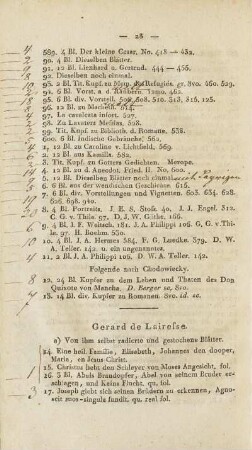 — 28 —
4 589. 4 Bl. Der kleine Cæsar, No. 418 — 432.
2 90. 4 Bl. Dieselben Blätter.
91. 12 Bl. Lienhard u. Gertrud. 444 — 455.
92. Dieselben noch einmal.
96. 6 Bl. div. Vorstell.
97. La carolesta infort.
98. Zu Lavaters Mesias.
99. Tit. Kupf. zu Biblioth. d. Romane. 538.
600. 6 Bl. Indische Gebräuche.
1. 12 Bl. zu Caroline v. Lichtfield.
2. 12 Bl. aus Kamilla.
3. Tit. Kupf. zu Gotters Gedichten. Merope.
4. 12 Bl. zu d. Anecdot. Fried. II. No. 600.
5. 12 Bl. Dieselben Blätter noch einmal
6. 8 Bl. aus der wendischen Geschichte. 615.
7. 6 Bl. div. Vorstellungen und Vignetten. 603. 654. 628.
626. 698. 940.
8. 4 Bl. Portraits, J. E. S. Stosch. 506. J. J. Engel. 312.
G. G. v. Thile. 97. D. J. W. Cuhn. 166.
9. 4 Bl. J. F. Waitsch. 181. J. A. Philippi 106. G. A. v. Thile.
97. H. Boehm. 550.
10. 4 Bl. J. A. Hermes 584. F. G. Luedke. 379. D. W.
A. Teller. 142. u. ein ungenannter.
11. 2 Bl. J. A. Philippi 106. D. W. A. Teller. 142.
Folgende nach Chodowiecky.
12. 4 Bl. Kupfer zu dem Leben und Thaten des Don
Quixote von Mancha. D. Berger sc. 8vo.
13. 14 Bl. div. Kupfer zu Romanen. 8vo. id. sc.
Gerard de Lairesse.
a) Von ihm selbst radirte und gestochene Blätter.
14. Eine heil Familie, Elisabeth, Johannes den dooper,
Maria, en Jesus Christ.
15. Christus hebt den Schleyer von Moses Angesicht, fol.
16. 3 Bl. Abels Brandopfer, Abel von seinem Bruder er-
schlagen, und Keins Flucht. qu. fol.
17. Joseph giebt sich seinen Brüdern zu erkennen, Agnos-
cit suos-singula fundit. qu. real fol.